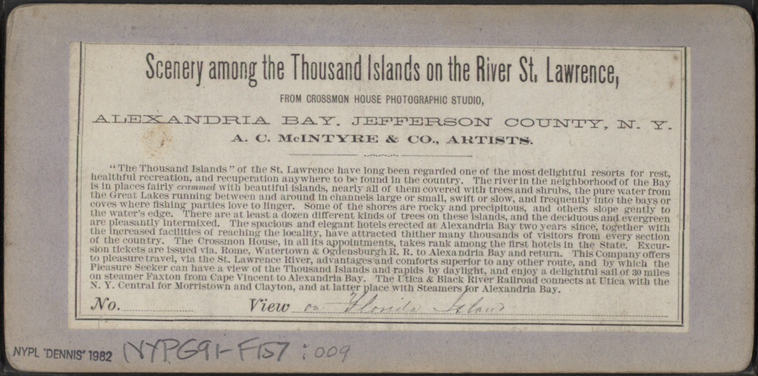 Scenery among the Thousand Islands on the River St. Lawrence,
FROM CROSSMON HOUSE PHOTOGRAPHIC STUDIO,
ALEXANDRIA BAY, JEFFERSON COUNTY, N. Y.
A. C. McINTYRE & CO., ARTISTS.
"The Thousand Islands" of the St. Lawrence have long been regarded one of the most delightful resorts for rest,
healthful recreation, and recuperation anywhere to be found in the country. The river in the neighborhood of the Bay
is in places fairly crammed with beautiful islands, nearly all of them covered with trees and shrubs, the pure water from
the Great Lakes running between and around in channels large or small, swift or slow, and frequently into the bays or
coves where fishing parties love to linger. Some of the shores are rocky and precipitous, and others slope gently to
the water's edge. There are at least a dozen different kinds of trees on these islands, and the deciduous and evergreen
are pleasantly intermixed. The spacious and elegant hotels erected at Alexandria Bay two years since, together with
the increased facilities of reaching the locality, have attracted thither many thousands of visitors from every section
of the country. The Crossmon House, in all its appointments, takes rank among the first hotels in the State. Excur-
sion tickets are issued via, Rome, Watertown & Ogdensburgh R. R. to Alexandria Bay and return. This Company offers
to pleasure travel, via the St. Lawrence River, advantages and comforts superior to any other route, and by which the
Pleasure Seeker can have a view of the Thousand Islands and rapids by daylight, and enjoy a delightful sail of 30 miles
on steamer Faxton from Cape Vincent to Alexandria Bay. The Utica & Black River Railroad connects at Utica with the
N. Y. Central for Morristown and Clayton, and at latter place with Steamers for Alexandria Bay.
No. View on Florida Island
NYPL "DENNIS" 1982 NYPG91-F157 : 009